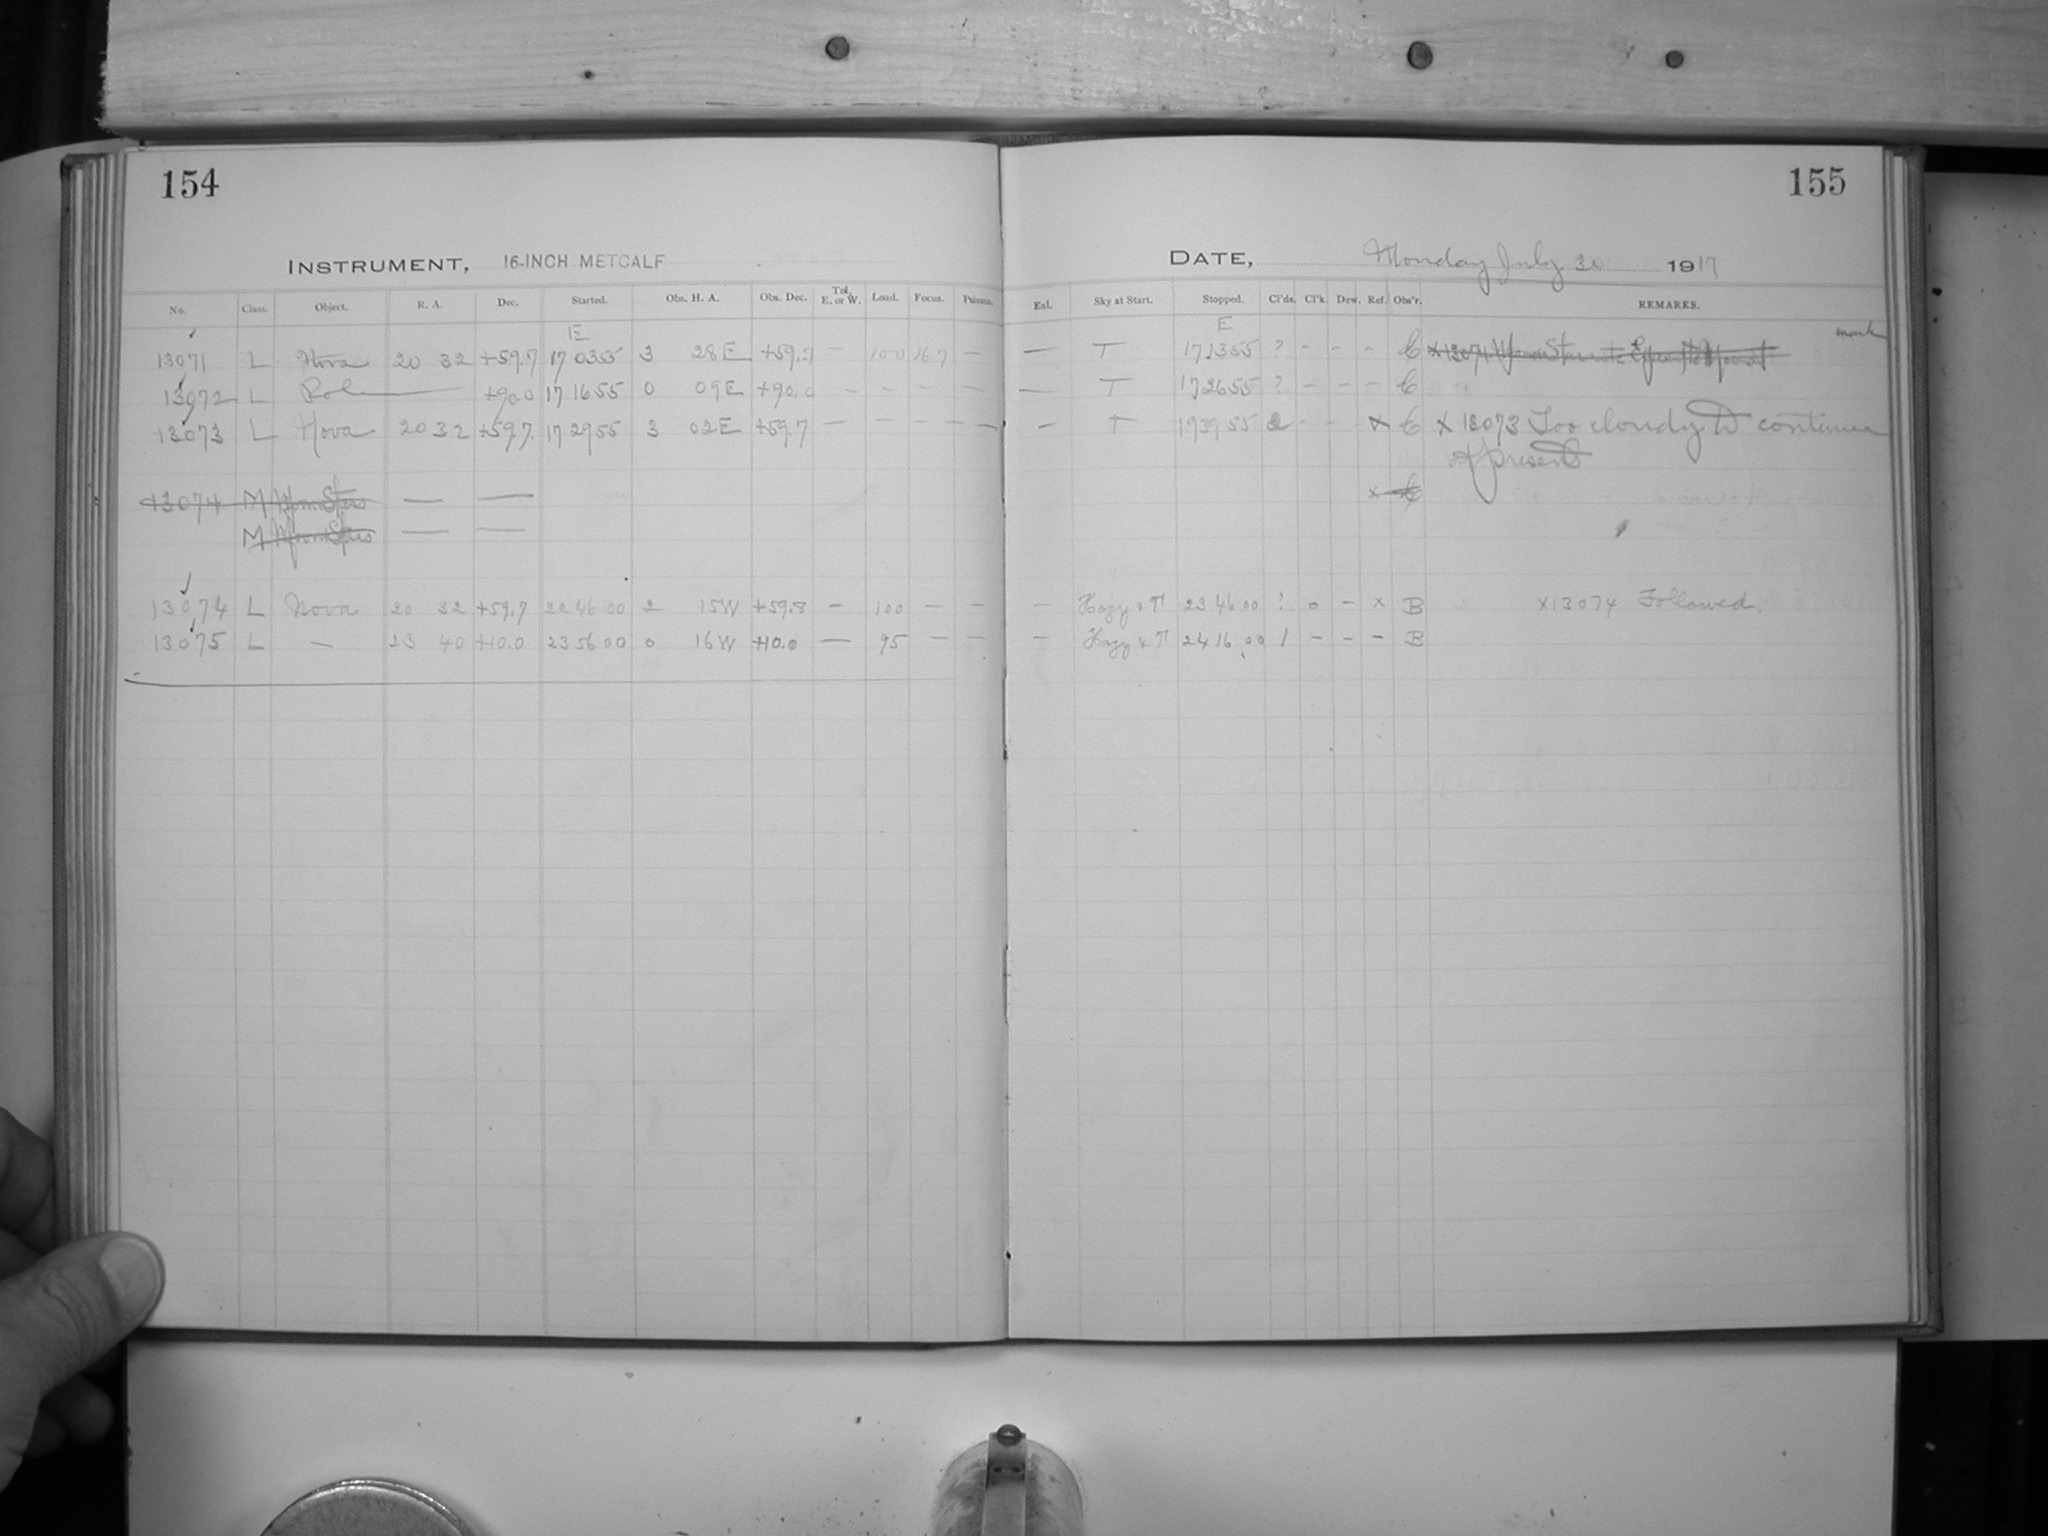 154
155
INSTRUMENT, 16-INCH METCALF
DATE, Monday July 30 1917
No. Class. Object. R. A. Dec. Started. Obs. H. A. Obs. Dec. Tel. E. or W. Load. Focus. Prisms. Enl. Sky at Start. Stopped. Cl'ds. Cl'k. Dew. Ref. Obs'r. REMARKS.
E E
13071 L Nova 20 32 +59.7 17 03 55 3 28 E +59.7 — 100 16.7 — — T 17 13 55 ? - - - C x 13074 mark
13072 L Pole — +90.0 17 16 55 0 09 E +90.0 — — — — — T 17 26 55 ? - - - C
13073 L Nova 20 32 +59.7 17 29 55 3 02 E +59.7 — — — — — T 17 39 55 2 - - x C x 13073 Too cloudy to continue
at present
13074 M Moon Stars — — x C
M Moon Stars — —
13074 L Nova 20 32 +59.7 22 46 00 2 15 W +59.8 — 100 — — — Hazy & T 23 46 00 ? 0 - x B x 13074 Followed.
13075 L — 23 40 +10.0 23 56 00 0 16 W +10.0 — 95 — — — Hazy & T 24 16 00 1 - - - B